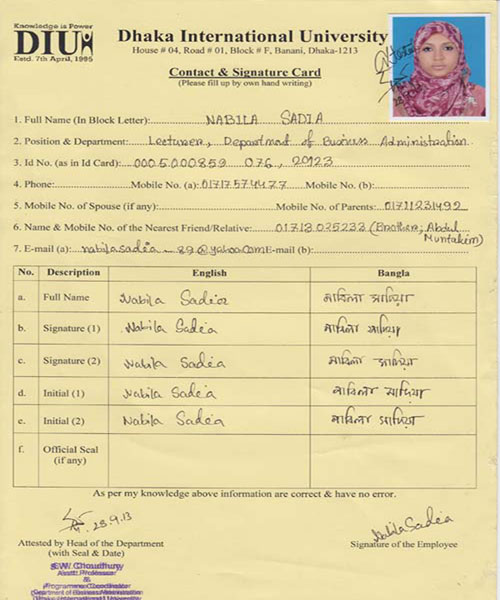 Knowledge is Power
DIU
Estd. 7th April, 1995
Dhaka International University
House # 04, Road # 01, Block # F, Banani, Dhaka-1213
Contact & Signature Card
(Please fill up by own hand writing)
1. Full Name (In Block Letter): NABILA SADIA
2. Position & Department: Lecturer, Department of Business Administration
3. Id No. (as in Id Card): 0005000859 076, 20123
4. Phone: Mobile No. (a): 01717574477 Mobile No. (b):
5. Mobile No. of Spouse (if any): Mobile No. of Parents: 01711231492
6. Name & Mobile No. of the Nearest Friend/Relative: 01713025233 (Brother, Abdul Muntakim)
7. E-mail (a): nabilasadia_89@yahoo.com E-mail (b):
No. Description English Bangla
a. Full Name Nabila Sadia নাবিলা সাদিয়া
b. Signature (1) Nabila Sadia নাবিলা সাদিয়া
c. Signature (2) Nabila Sadia নাবিলা সাদিয়া
d. Initial (1) Nabila Sadia নাবিলা সাদিয়া
e. Initial (2) Nabila Sadia নাবিলা সাদিয়া
f. Official Seal (if any)
As per my knowledge above information are correct & have no error.
28.9.13
Nabila Sadia
Attested by Head of the Department
(with Seal & Date)
Signature of the Employee
Choudhury
Asstt. Professor
&
Programme Coordinator
Department of Business Administration
Dhaka International University